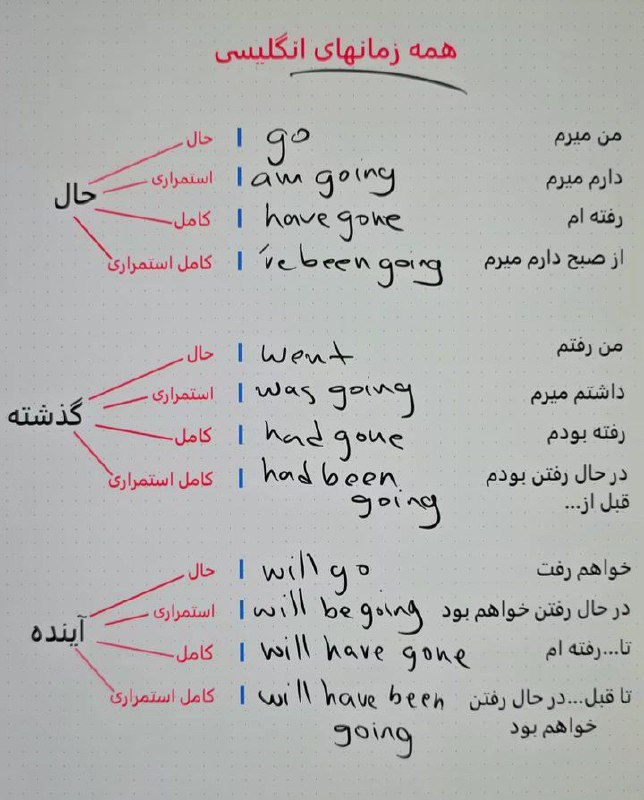 همه زمانهای انگلیسی
حال
حال I go من میرم
استمراری I am going دارم میرم
کامل I have gone رفته ام
کامل استمراری I 've been going از صبح دارم میرم
گذشته
حال I went من رفتم
استمراری I was going داشتم میرم
کامل I had gone رفته بودم
کامل استمراری I had been going در حال رفتن بودم
قبل از...
آینده
حال I will go خواهم رفت
استمراری I will be going در حال رفتن خواهم بود
کامل I will have gone تا...رفته ام
کامل استمراری I will have been going تا قبل...در حال رفتن
خواهم بود